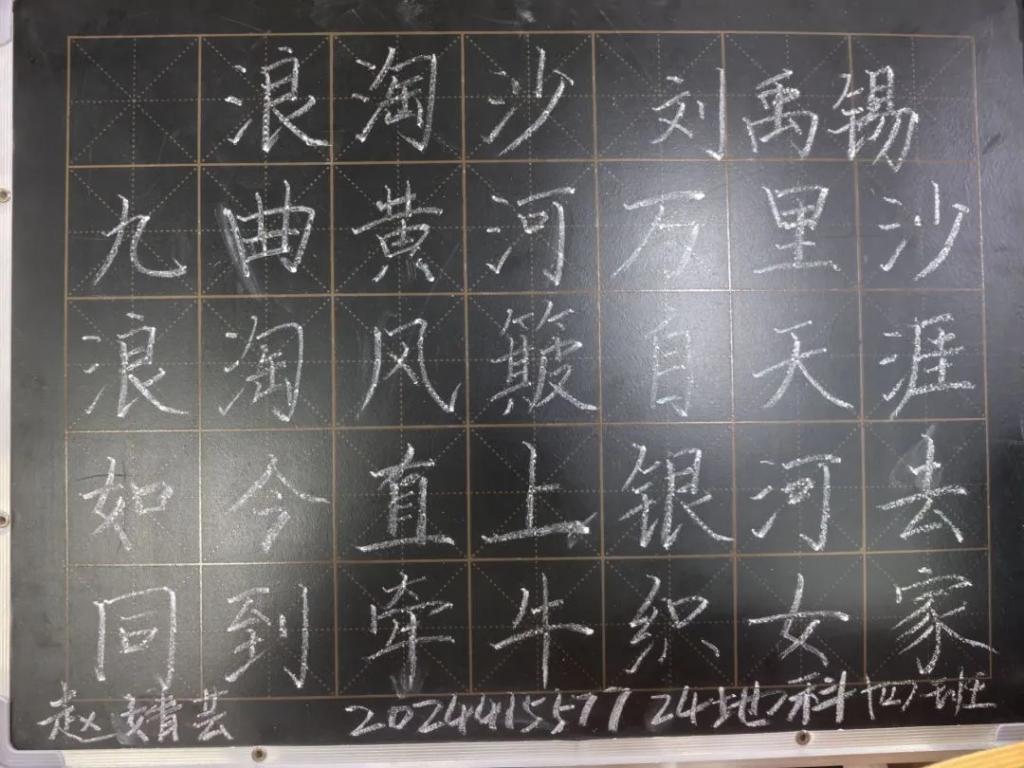 浪淘沙 刘禹锡
九曲黄河万里沙
浪淘风簸自天涯
如今直上银河去
同到牵牛织女家
赵婧芸 2024415577 24地科(四)班